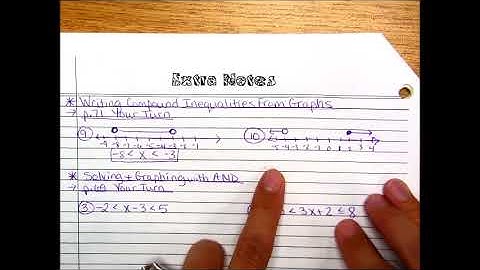 Extra Notes
* Writing Compound Inequalities From Graphs
→ p.71 Your Turn
9 10
-8 < x < -3
* Solving + Graphing with AND
→ p.69 Your Turn
3 -2 < x - 3 < 5 < 3x + 2 ≤ 8